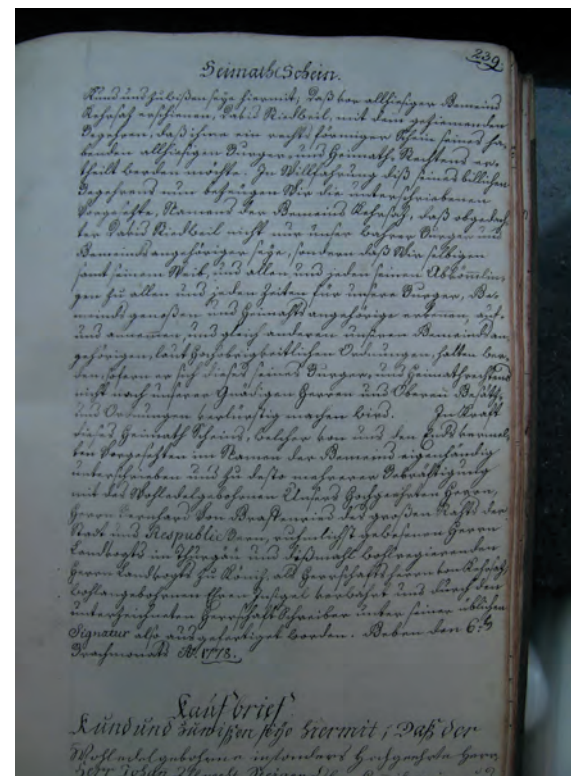 239
Heimath Schein.
Kund und zu wißen seye hiermit, daß vor allhiesiger Gemeind
Kehrsatz erschienen, mit dem geziemenden
Begehren, daß ihme ein rechtsförmiger Schein seines ha-
benden allhiesigen Burger- und Heimath-Rechtens er-
theilt werden möchte. In Willfahrung diß seines billichen
Begehrens nun bezeugen Wir die unterschriebenen
Vorgesetzte, Namens der Gemeind Kehrsatz, daß obgedach-
ter nicht nur unser wahrer Burger und
Gemeindsangehöriger seye, sondern daß Wir selbigen
samt seinem Weib, und allen, und jeden seinen Abkömmlin-
gen zu allen und jeden Zeiten für unsere Burger, Ge-
meindsgenoßen und Heimathsangehörige erkennen, auf-
und annemmen, und gleich anderen unseren Gemeindsan-
gehörigen, laut Hochobrigkeitlichen Ordnungen, halten wer-
den, sofern er sich dieses seines Burger- und Heimathrechtens
nicht nach unserer Gnädigen Herren und Oberen
und Ordnungen verlürstig machen wird. In Kraft
dieses Heimath Scheins, welcher von uns den Endsbermel-
ten Vorgesetzten im Namen der Gemeind eigenhändig
unterschrieben und zu desto mehrerer Bekräftigung
mit des Wohledelgebohrnen Unsers Hochgeehrten Herren,
Herrn Bernhard von Graffenried des großen Rahts der
Stadt und Respublic Bern, ruhmlichst gewesenen Herrn
Landvogts in Thurgäu und dißmahl wohlregierenden
Herrn Landvogts zu Köniz, als Herrschaftsherrn von Kehrsatz,
wohlangebohrnem Ehren Insigel verwahrt und durch den
unterzeichneten Herrschaft Schreiber unter seiner üblichen
Signatur also ausgefertiget worden. Geben den 6.ten
Brachmonats Ao. 1778.
Kaufbrief
Kund und zuwißen seye hiermit; Daß der
Wohledelgebohrne insonders Hochgeehrte Herr